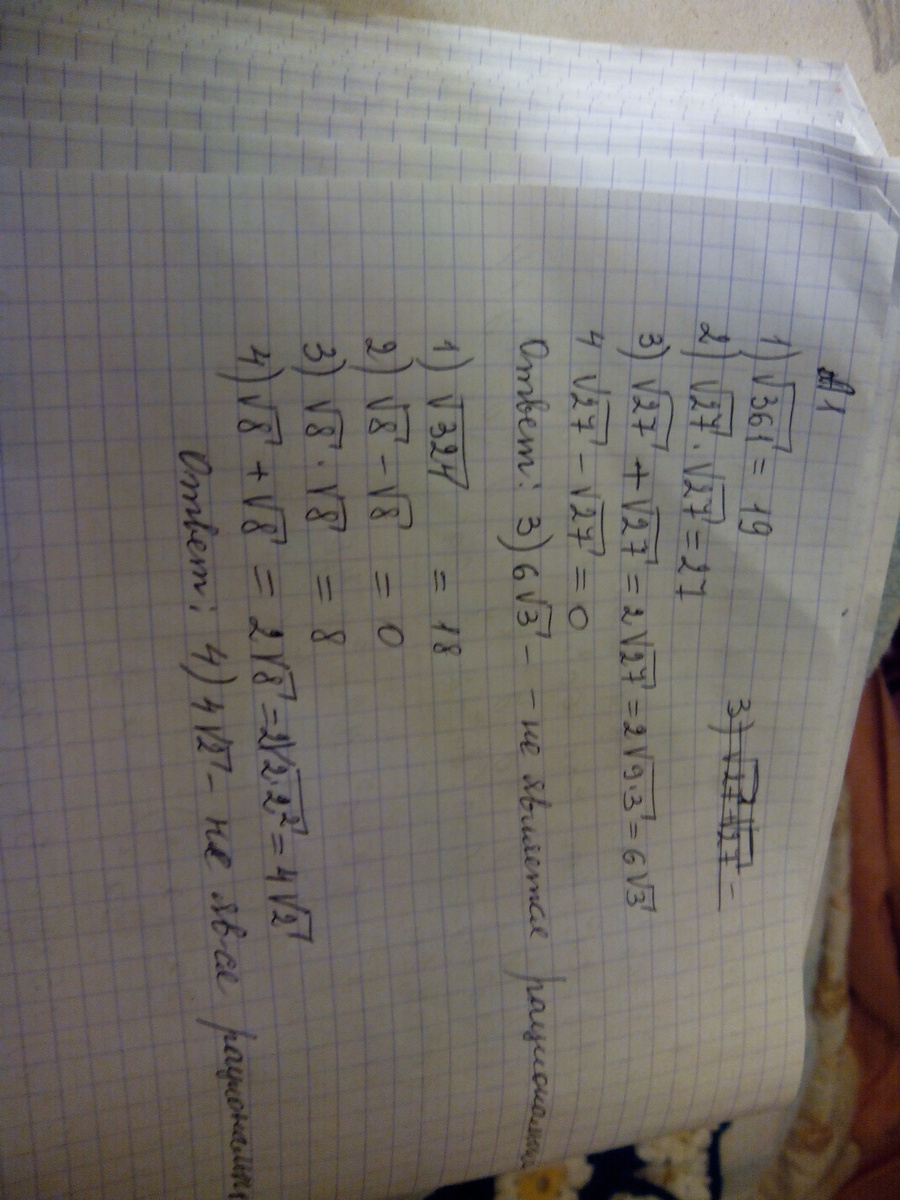 А1
1) √361 = 19
2) √27 · √27 = 27
3) √27 + √27 = 2√27 = 2√9·3 = 6√3
4 √27 − √27 = 0
Ответ: 3) 6√3 - - не является
1) √324 = 18
2) √8 − √8 = 0
3) √8 · √8 = 8
4) √8 + √8 = 2√8 = 2√2·2² = 4√2
Ответ: 4) 4√2 - не явл